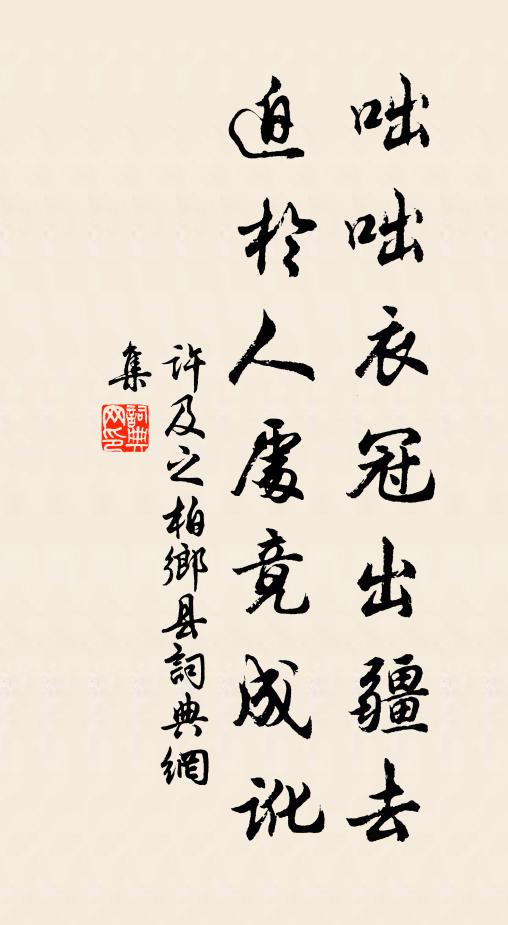 咄咄衣冠出疆去
迫於人處竟成訛
許及之柏鄉县詞典網
集
詞典網印